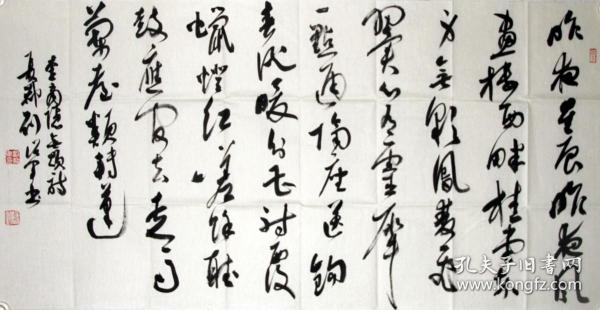 昨夜星辰昨夜風
畫樓西畔桂堂東
身無彩鳳雙飛
翼心有靈犀
一點通隔座送鉤
春酒暖分曹射覆
蠟燈紅嗟餘聽
鼓應官去走馬
蘭臺類轉蓬
李商隱無題詩
劉 書
孔夫子旧书网
www.kongfz.com